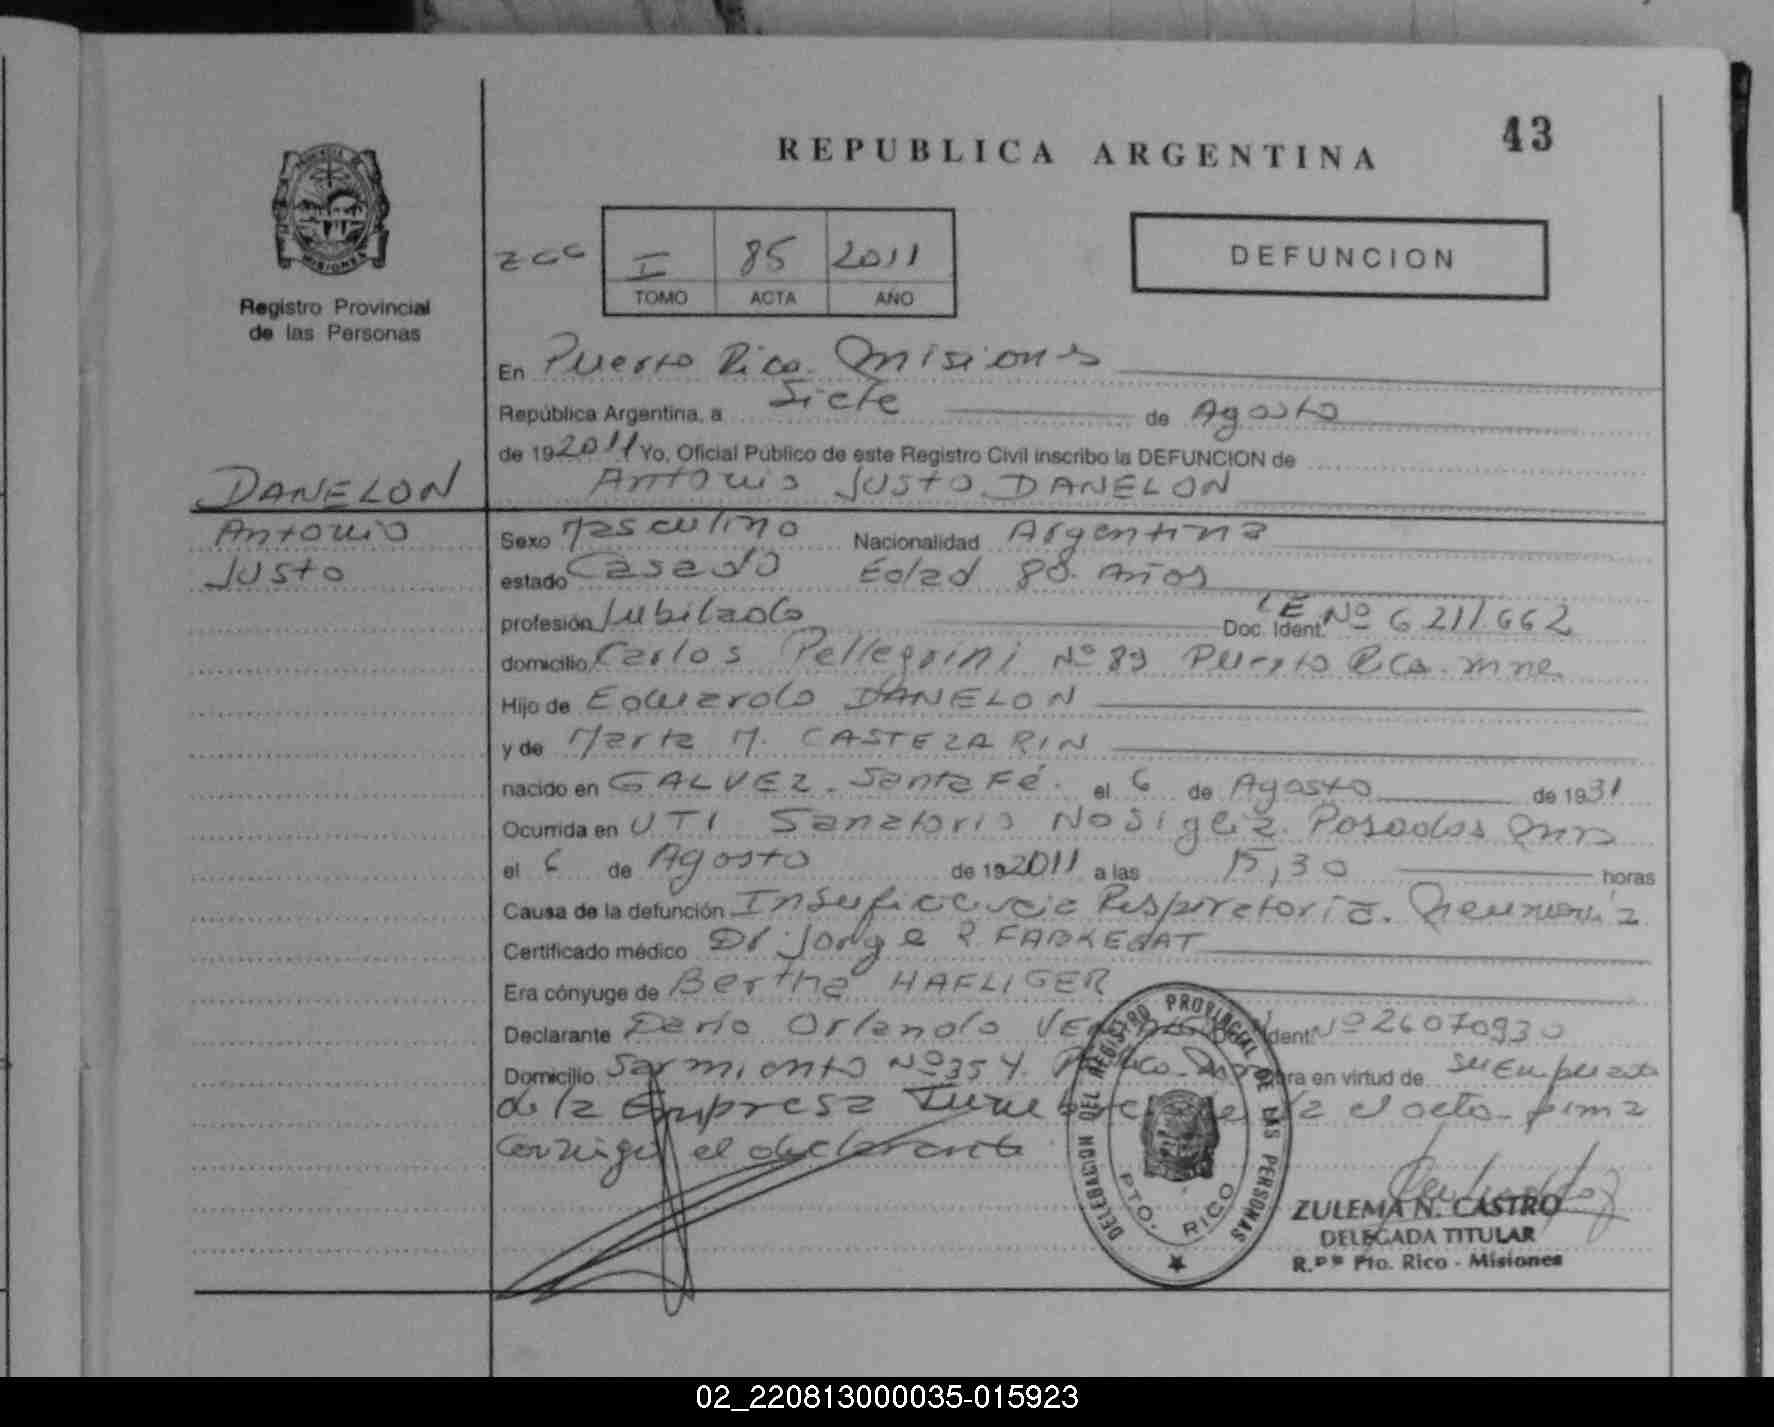 43
REPUBLICA ARGENTINA
DEFUNCION
I 85 2011
TOMO ACTA AÑO
Registro Provincial
de las Personas
En Puerto Rico. Misiones
República Argentina, a Siete de Agosto
de 192011 Yo, Oficial Público de este Registro Civil inscribo la DEFUNCION de
DANELON
Antonio Justo DANELON
Antonio
Justo
Sexo Masculino Nacionalidad Argentina
estado Casado Edad 80 Años
profesión Jubilado Doc. Ident. LE Nº 6211662
domicilio Carlos Pellegrini Nº 89 Puerto Rico. Mnes
Hijo de Eduardo DANELON
y de Marta M. CASTELARIN
nacido en GALVEZ. Santa Fé. el 6 de Agosto de 1931
Ocurrida en UTI Sanatorio Nosiglia. Posadas Mnes
el 6 de Agosto de 192011 a las 15,30 horas
Causa de la defunción Insuficiencia Respiratoria. Neumonía
Certificado médico Dr. Jorge R.
Era cónyuge de Bertha HAFLIGER
Declarante Dario Orlando Ident Nº 26070930
Domicilio Sarmiento Nº 354. P. Rico ra en virtud de su Empleado
de la Empresa el acto. firma
conmigo el declarante
DELEGACION DEL REGISTRO PROVINCIAL DE LAS PERSONAS
PTO. RICO
ZULEMA N. CASTRO
DELEGADA TITULAR
R.PP Pto. Rico - Misiones
02_220813000035-015923